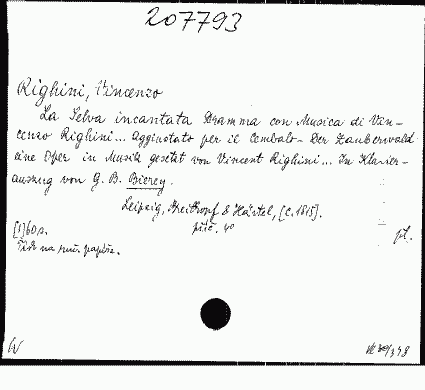 207793
Righini, Vincenzo
La Selva incantata Dramma con Musica di Vin-
cenzo Righini... Aggiustato per il Cembalo - Der Zauberwald
eine Oper in Musik gesetzt von Vincent Righini... In Klavier-
auszug von G. B. Bierey.
Leipzig, Breitkopf & Härtel, [c. 1815].
[1] 60 s. příč. 40
Tisk na ruč. papíře.
pl.
W